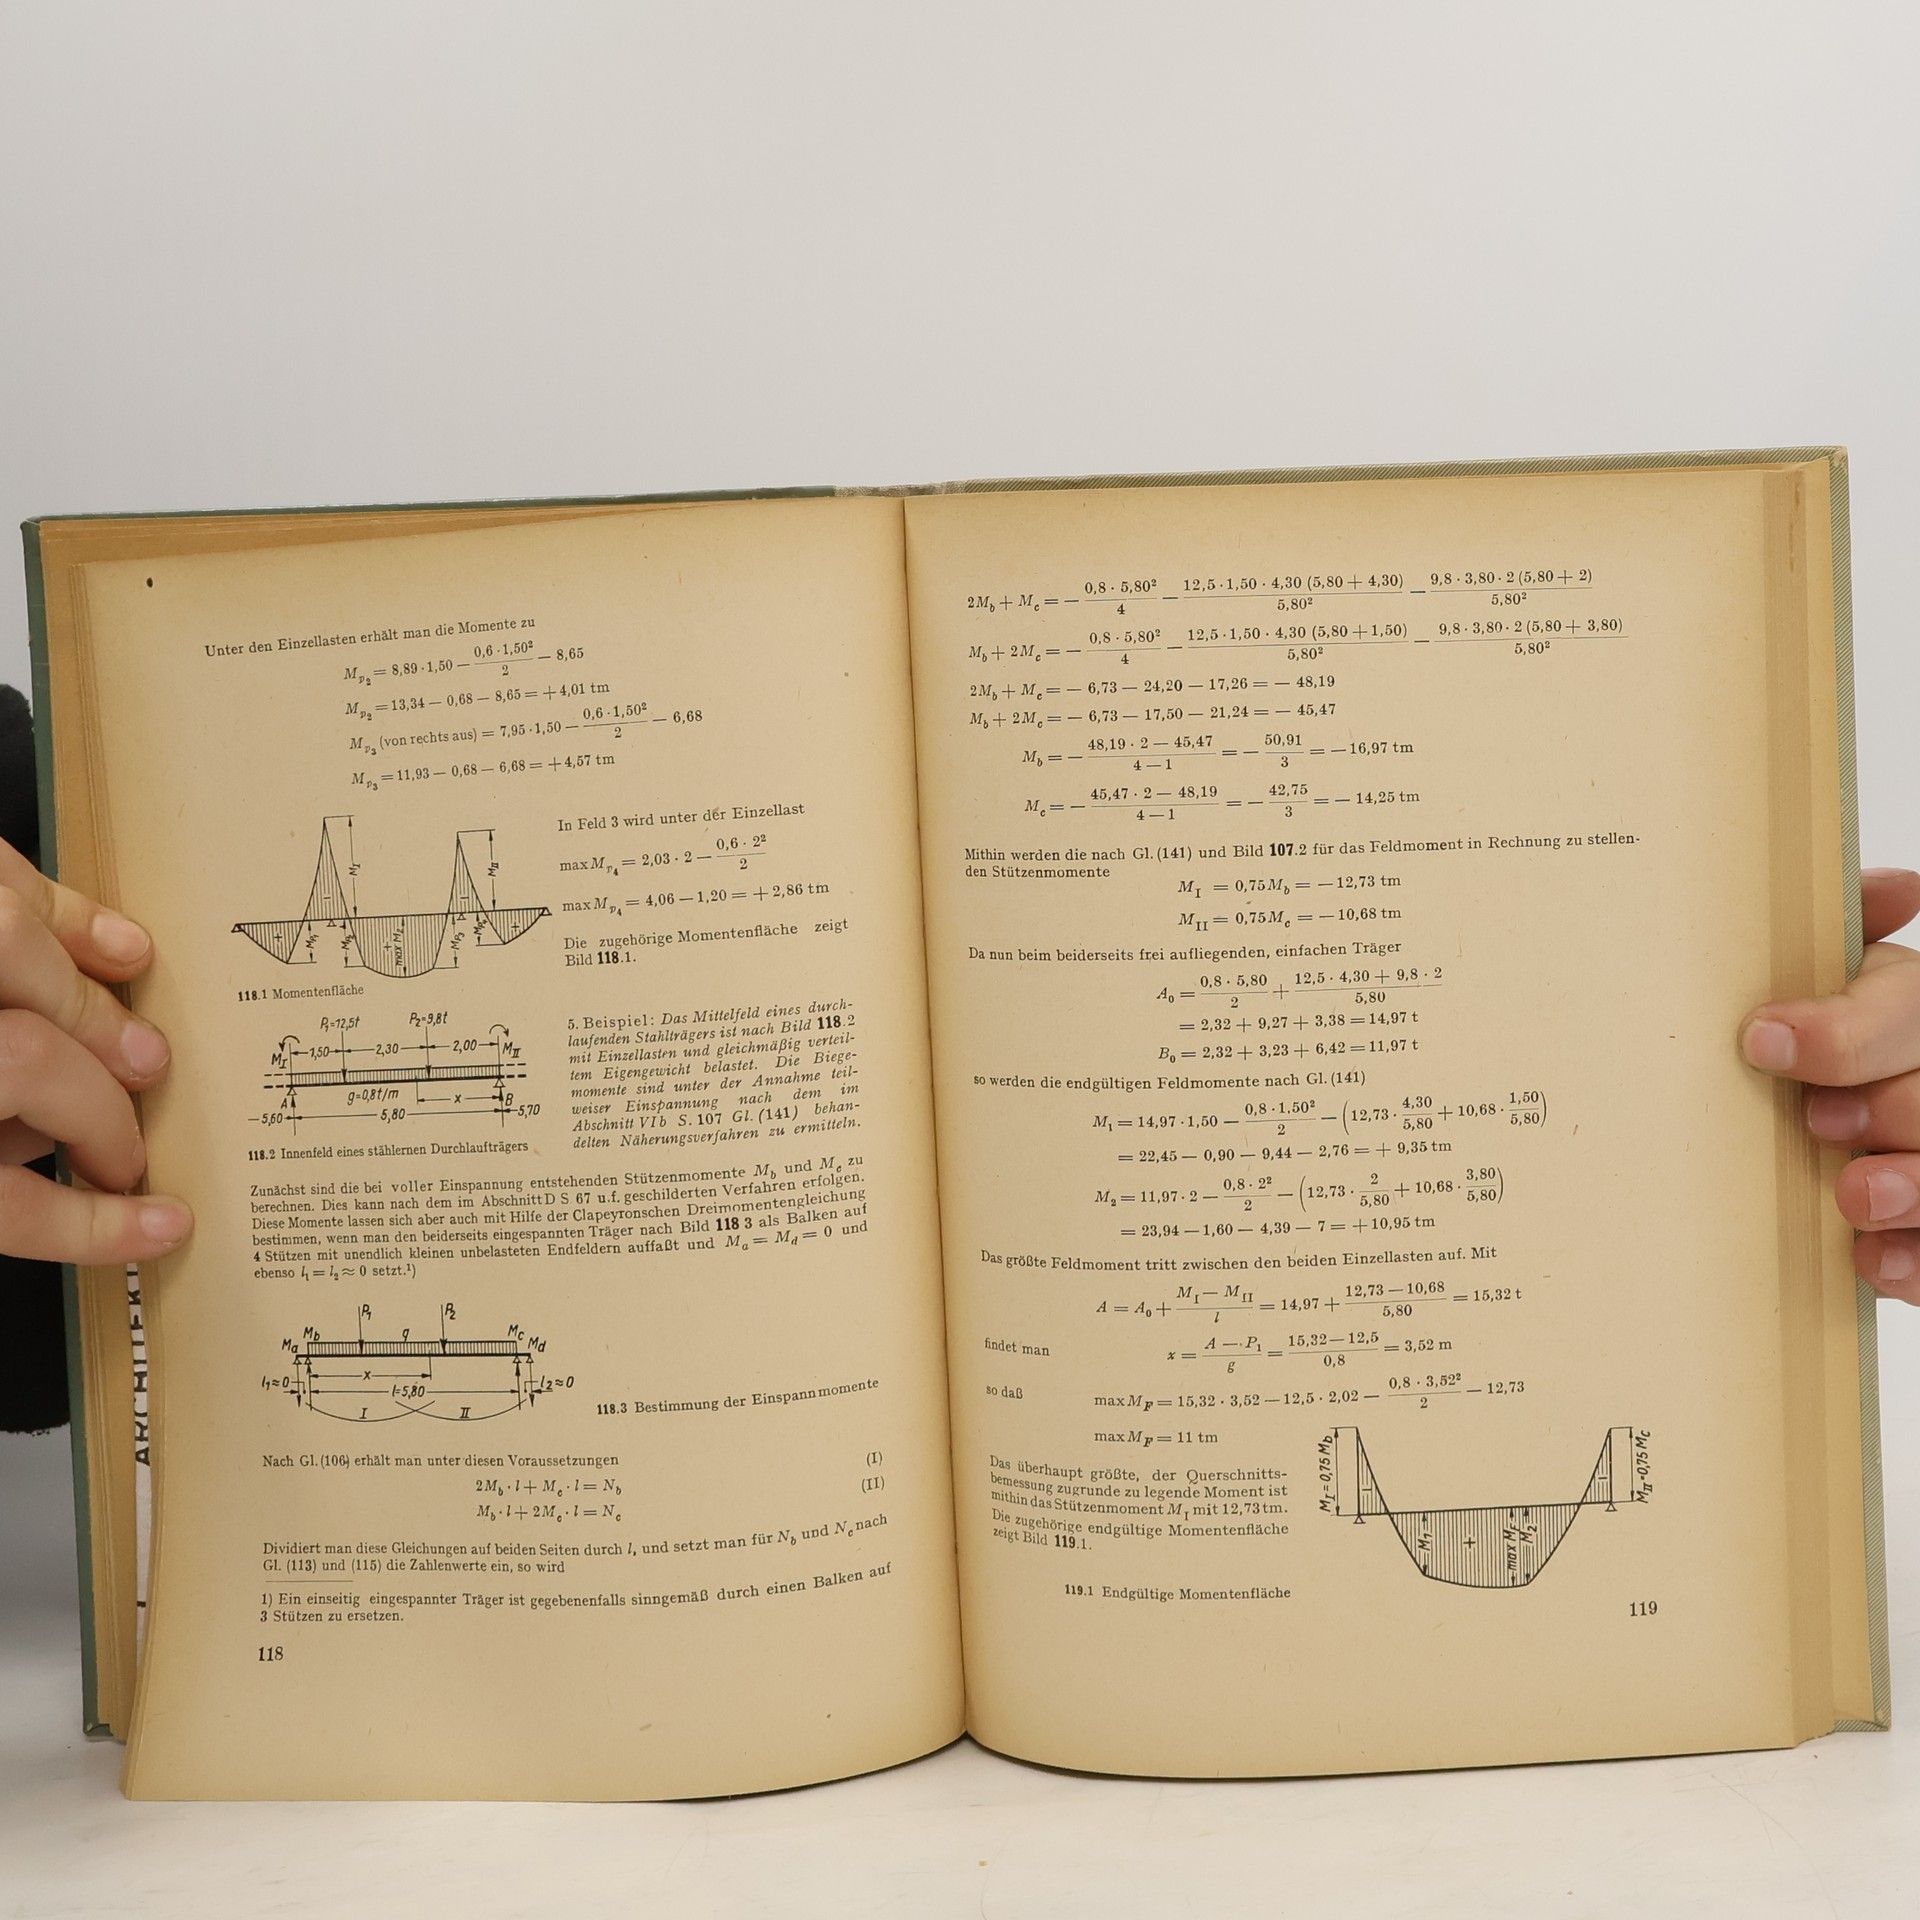 Unter den Einzellasten erhält man die Momente zu
M_{p_2} = 8,89 · 1,50 − \frac{0,6 · 1,50²}{2} − 8,65
M_{p_2} = 13,34 − 0,68 − 8,65 = + 4,01 tm
M_{p_3} (von rechts aus) = 7,95 · 1,50 − \frac{0,6 · 1,50²}{2} − 6,68
M_{p_3} = 11,93 − 0,68 − 6,68 = + 4,57 tm
M_I
M_II
−
−
+
M_{p_1}
M_{p_2}
+
max M_2
M_{p_3}
M_{p_4}
+
118.1 Momentenfläche
In Feld 3 wird unter der Einzellast
max M_{p_4} = 2,03 · 2 − \frac{0,6 · 2²}{2}
max M_{p_4} = 4,06 − 1,20 = + 2,86 tm
Die zugehörige Momentenfläche zeigt
Bild 118.1.
P_1=12,5t
P_2=9,8t
M_I
1,50
2,30
2,00
M_II
A
g=0,8t/m
x
B
5,60
5,80
5,70
118.2 Innenfeld eines stählernen Durchlaufträgers
5. Beispiel: Das Mittelfeld eines durch-
laufenden Stahlträgers ist nach Bild 118.2
mit Einzellasten und gleichmäßig verteil-
tem Eigengewicht belastet. Die Biege-
momente sind unter der Annahme teil-
weiser Einspannung nach dem im
Abschnitt VI b S. 107 Gl. (141) behan-
delten Näherungsverfahren zu ermitteln.
Zunächst sind die bei voller Einspannung entstehenden Stützenmomente M_b und M_c zu
berechnen. Dies kann nach dem im Abschnitt D S 67 u.f. geschilderten Verfahren erfolgen.
Diese Momente lassen sich aber auch mit Hilfe der Clapeyronschen Dreimomentengleichung
bestimmen, wenn man den beiderseits eingespannten Träger nach Bild 118 3 als Balken auf
4 Stützen mit unendlich kleinen unbelasteten Endfeldern auffaßt und M_a = M_d = 0 und
ebenso l_1 = l_2 ≈ 0 setzt.¹)
P_1
P_2
M_a
M_b
g
M_c
M_d
l_1≈0
x
l_2≈0
l=5,80
I
II
118.3 Bestimmung der Einspannmomente
Nach Gl. (106) erhält man unter diesen Voraussetzungen
2M_b · l + M_c · l = N_b (I)
M_b · l + 2M_c · l = N_c (II)
Dividiert man diese Gleichungen auf beiden Seiten durch l, und setzt man für N_b und N_c nach
Gl. (113) und (115) die Zahlenwerte ein, so wird
1) Ein einseitig eingespannter Träger ist gegebenenfalls sinngemäß durch einen Balken auf
3 Stützen zu ersetzen.
118
2M_b + M_c = − \frac{0,8 · 5,80²}{4} − \frac{12,5 · 1,50 · 4,30 (5,80 + 4,30)}{5,80²} − \frac{9,8 · 3,80 · 2 (5,80 + 2)}{5,80²}
M_b + 2M_c = − \frac{0,8 · 5,80²}{4} − \frac{12,5 · 1,50 · 4,30 (5,80 + 1,50)}{5,80²} − \frac{9,8 · 3,80 · 2 (5,80 + 3,80)}{5,80²}
2M_b + M_c = − 6,73 − 24,20 − 17,26 = − 48,19
M_b + 2M_c = − 6,73 − 17,50 − 21,24 = − 45,47
M_b = − \frac{48,19 · 2 − 45,47}{4 − 1} = − \frac{50,91}{3} = − 16,97 tm
M_c = − \frac{45,47 · 2 − 48,19}{4 − 1} = − \frac{42,75}{3} = − 14,25 tm
Mithin werden die nach Gl. (141) und Bild 107.2 für das Feldmoment in Rechnung zu stellen-
den Stützenmomente
M_I = 0,75 M_b = − 12,73 tm
M_II = 0,75 M_c = − 10,68 tm
Da nun beim beiderseits frei aufliegenden, einfachen Träger
A_0 = \frac{0,8 · 5,80}{2} + \frac{12,5 · 4,30 + 9,8 · 2}{5,80}
= 2,32 + 9,27 + 3,38 = 14,97 t
B_0 = 2,32 + 3,23 + 6,42 = 11,97 t
so werden die endgültigen Feldmomente nach Gl. (141)
M_1 = 14,97 · 1,50 − \frac{0,8 · 1,50²}{2} − (12,73 · \frac{4,30}{5,80} + 10,68 · \frac{1,50}{5,80})
= 22,45 − 0,90 − 9,44 − 2,76 = + 9,35 tm
M_2 = 11,97 · 2 − \frac{0,8 · 2²}{2} − (12,73 · \frac{2}{5,80} + 10,68 · \frac{3,80}{5,80})
= 23,94 − 1,60 − 4,39 − 7 = + 10,95 tm
Das größte Feldmoment tritt zwischen den beiden Einzellasten auf. Mit
A = A_0 + \frac{M_I − M_II}{l} = 14,97 + \frac{12,73 − 10,68}{5,80} = 15,32 t
findet man x = \frac{A − P_1}{g} = \frac{15,32 − 12,5}{0,8} = 3,52 m
so daß max M_F = 15,32 · 3,52 − 12,5 · 2,02 − \frac{0,8 · 3,52²}{2} − 12,73
max M_F = 11 tm
Das überhaupt größte, der Querschnitts-
bemessung zugrunde zu legende Moment ist
mithin das Stützenmoment M_I mit 12,73 tm.
Die zugehörige endgültige Momentenfläche
zeigt Bild 119.1.
M_I=0,75 M_b
−
M_1
+
max M_F
M_2
−
M_II=0,75 M_c
119.1 Endgültige Momentenfläche
119